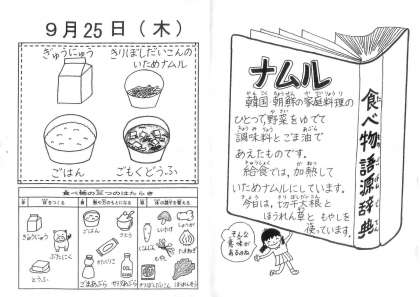 9月25日(木)
ぎゅうにゅう
きりぼしだいこんの
いためナムル
ごはん
ごもくどうふ
食べ物の三つのはたらき
ぎゅうにゅう
ぶたにく
とうふ
ごはん
さとう
かたくりこ
ごまあぶら
にんじん
しょうが
もやし
ナムル
韓国 朝鮮の家庭料理の
ひとつで野菜をゆでて
調味料とごま油で
あえたものです。
給食では、加熱して
いためナムルにしています。
今日は、切干大根と
ほうれん草と もやしを
使っています。
食べ物語源辞典
そんな
意味が
あるのね